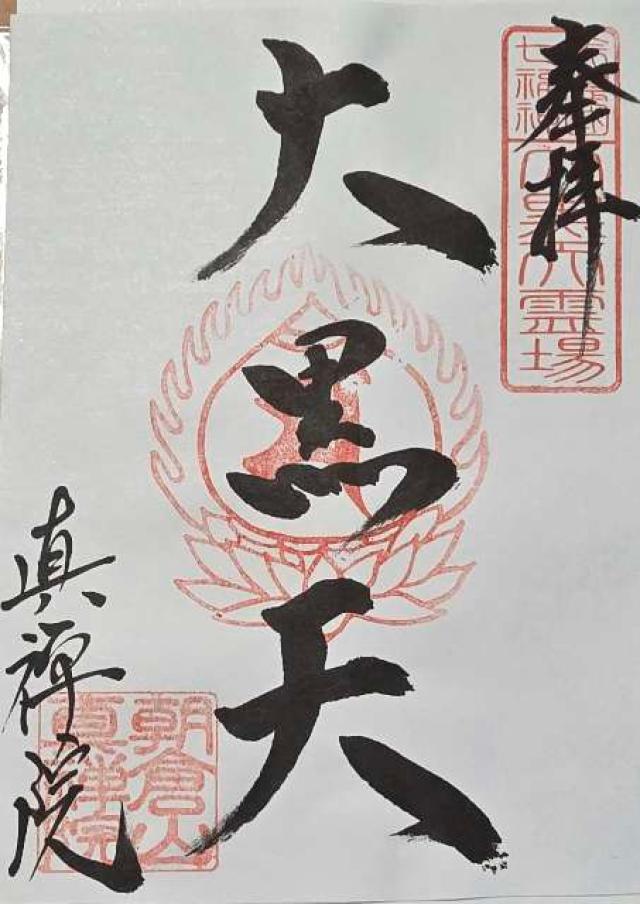 奉拝
七福神
大黒天霊場
大黒天
真禅院
朝倉山
真禅院